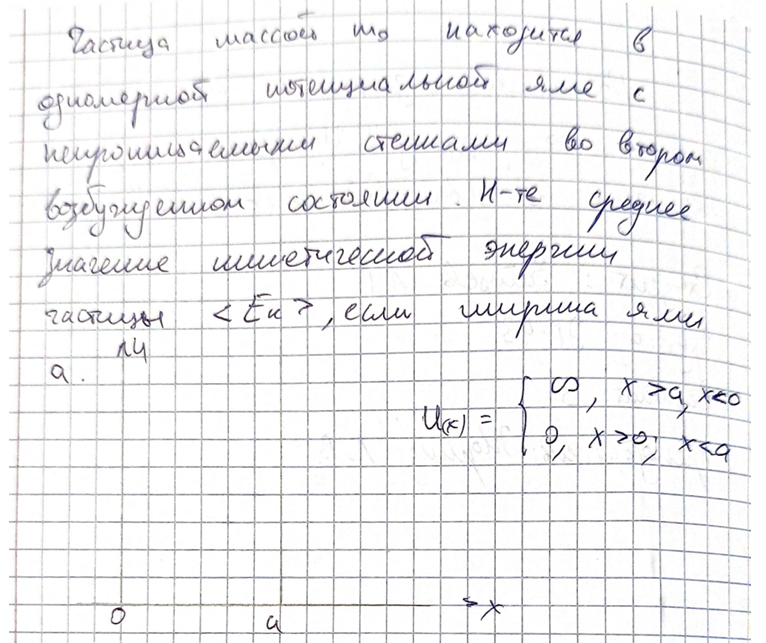 Частица массой m₀ находится в
одномерной потенциальной яме с
непроницаемыми стенками во втором
возбужденном состоянии. Н-те среднее
значение кинетической энергии
частицы <Eк>, если ширина ямы
a.
U
U(x) = { ∞, x >a, x<0
0, x >0; x<a
0 a x